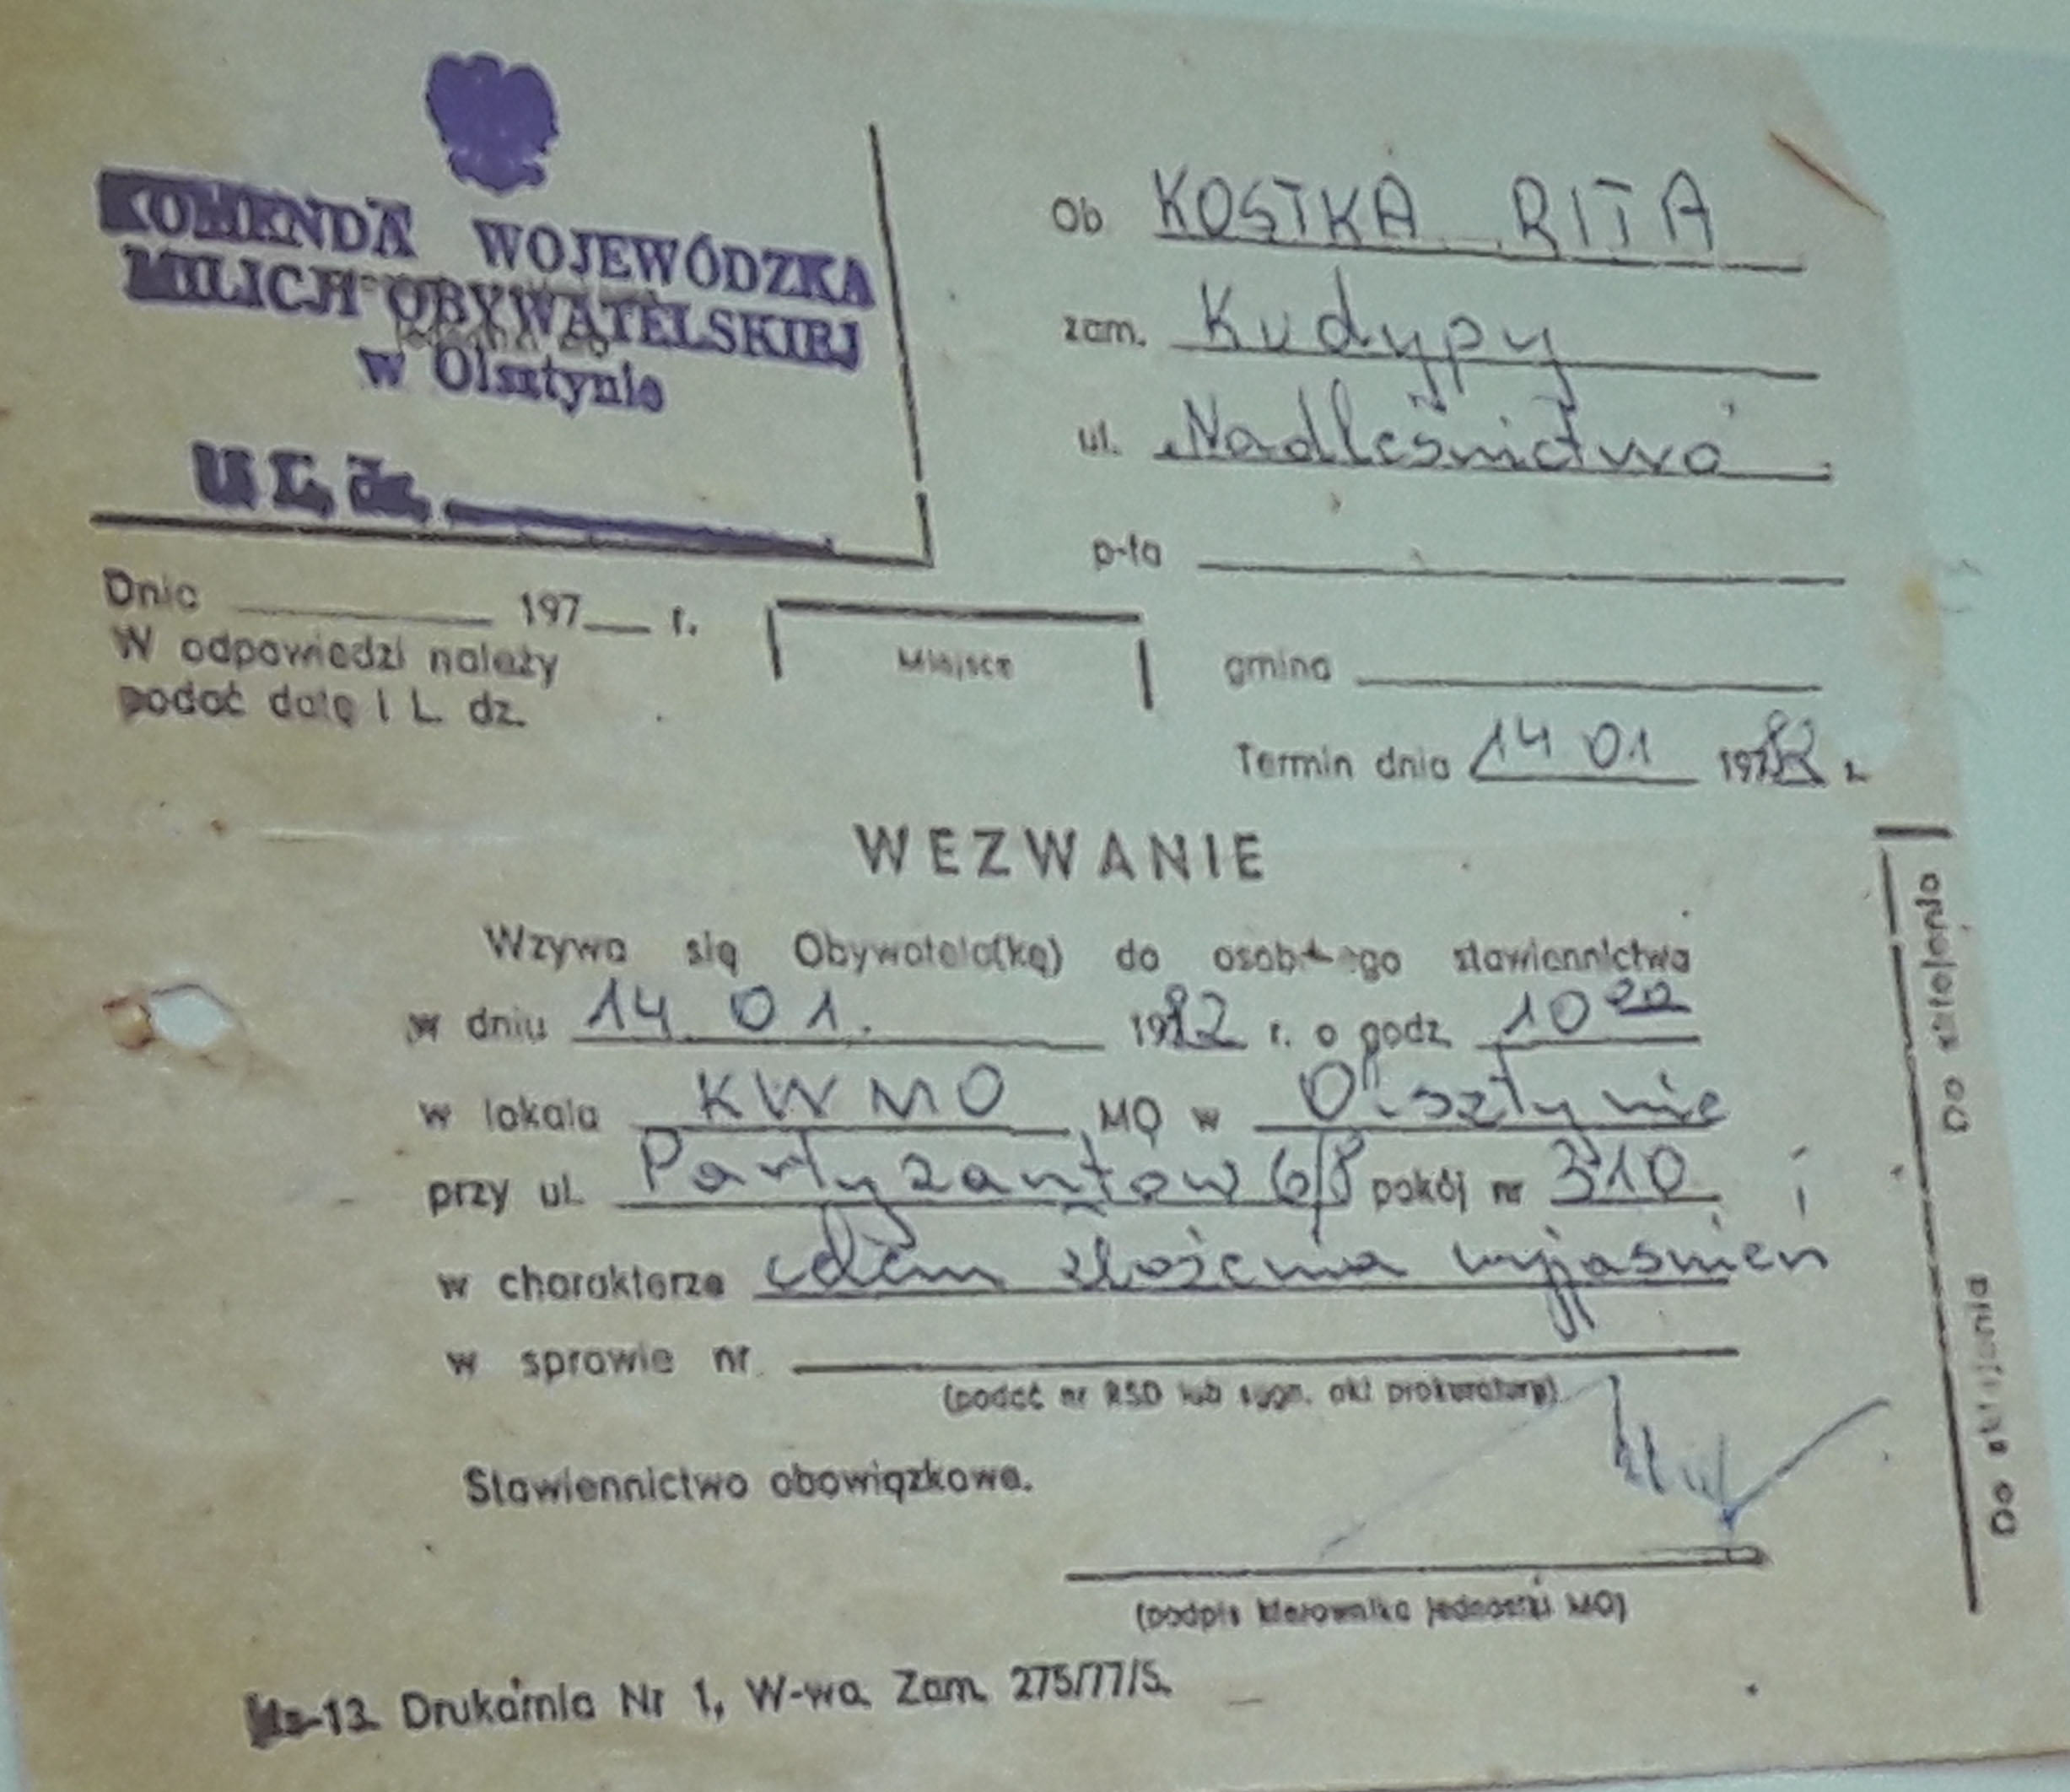 KOMENDA WOJEWÓDZKA
MILICJI OBYWATELSKIEJ
w Olsztynie
L. dz.
Ob. KOSTKA RITA
zam. Kudypy
ul. Nadleśnictwo
p-ta
gmina
Termin dnia 14 01 1982 r.
Dnia 197 r.
W odpowiedzi należy
podać datę i L. dz.
Miejsce
WEZWANIE
Wzywa się Obywatela(kę) do osobistego stawiennictwa
w dniu 14 01. 1982 r. o godz. 10 00
w lokalu KWMO MO w Olsztynie
przy ul. Partyzantów 6/8 pokój nr 310
w charakterze celem złożenia wyjaśnień
w sprawie nr
(podać nr RSD lub sygn. akt prokuratury)
Stawiennictwo obowiązkowe.
(podpis kierownika jednostki MO)
Ms-13. Drukarnia Nr 1, W-wa. Zam. 275/77/S.